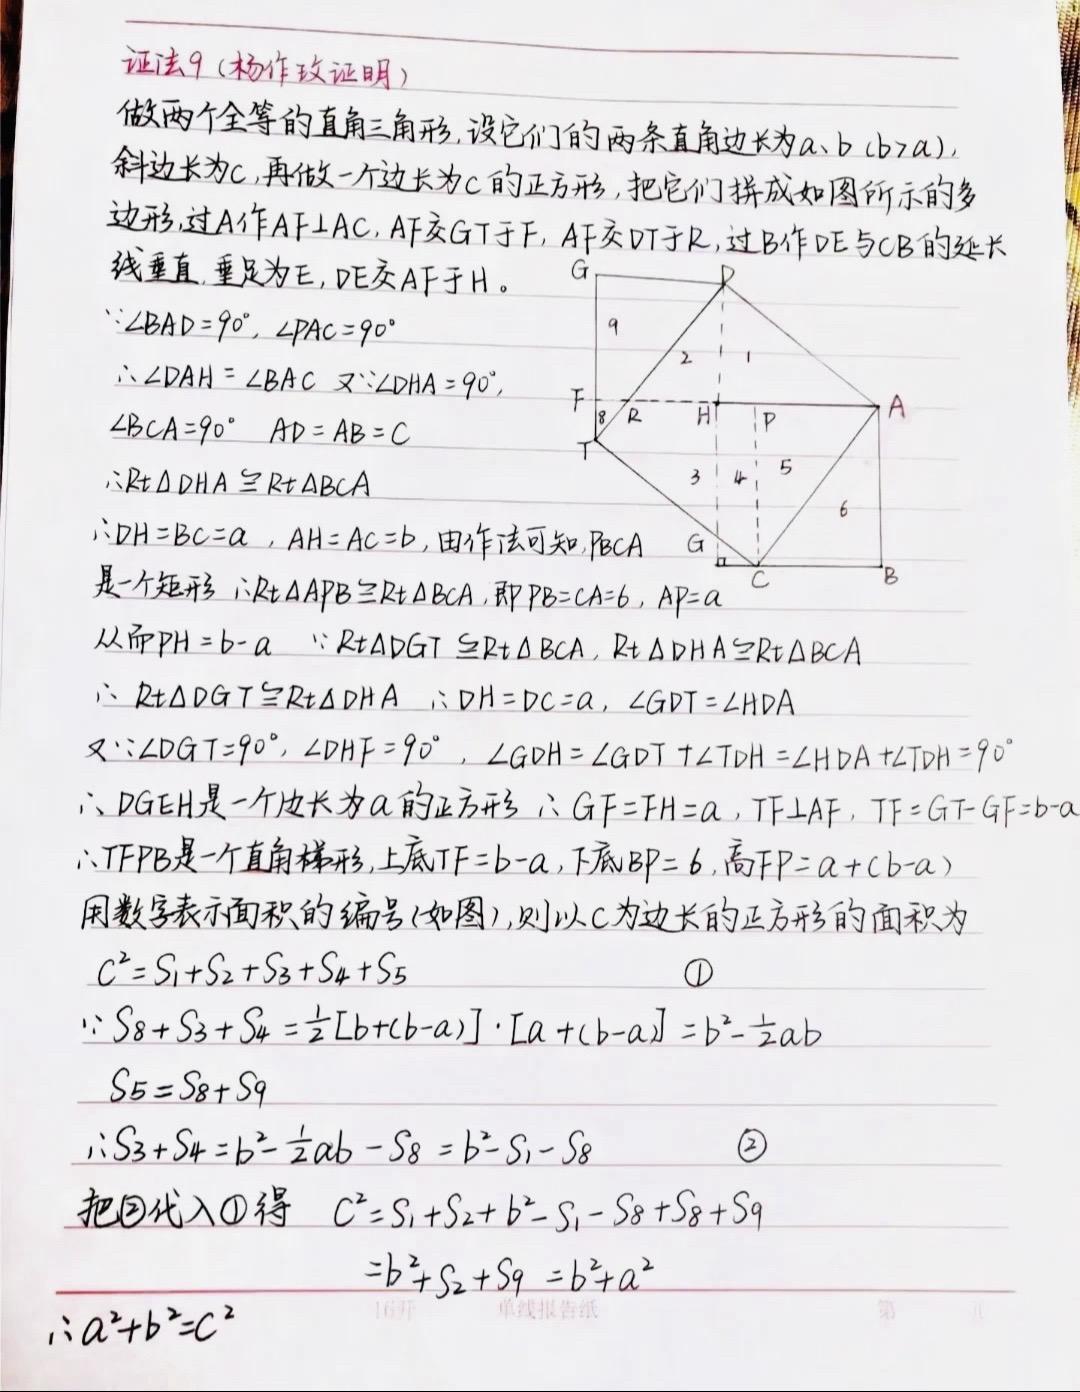 证法9(杨作玫证明)
做两个全等的直角三角形,设它们的两条直角边长为a、b(b>a),
斜边长为c,再做一个边长为c的正方形,把它们拼成如图所示的多
边形,过A作AF⊥AC,AF交GT于F,AF交DT于R,过B作DE与CB的延长
线垂直,垂足为E,DE交AF于H。
G D
9 2 1
F 8 R H P A
T
3 4 5 6
G C B
∵∠BAD=90°,∠PAC=90°
∴∠DAH=∠BAC 又∵∠DHA=90°,
∠BCA=90° AD=AB=C
∴Rt△DHA≌Rt△BCA
∴DH=BC=a,AH=AC=b,由作法可知,PBCA
是一个矩形 ∴Rt△APB≌Rt△BCA,即PB=CA=6,AP=a
从而PH=b-a ∵Rt△DGT≌Rt△BCA,Rt△DHA≌Rt△BCA
∴Rt△DGT≌Rt△DHA ∴DH=DC=a,∠GDT=∠HDA
又∵∠DGT=90°,∠DHF=90°,∠GDH=∠GDT+∠TDH=∠HDA+∠TDH=90°
∴DGEH是一个边长为a的正方形 ∴GF=FH=a,TF⊥AF,TF=GT-GF=b-a
∴TFPB是一个直角梯形,上底TF=b-a,下底BP=6,高FP=a+(b-a)
用数字表示面积的编号(如图),则以C为边长的正方形的面积为
C²=S₁+S₂+S₃+S₄+S₅ ①
∵S₈+S₃+S₄=½[b+(b-a)]·[a+(b-a)]=b²-½ab
S₅=S₈+S₉
∴S₃+S₄=b²-½ab-S₈=b²-S₁-S₈ ②
把②代入①得 C²=S₁+S₂+b²-S₁-S₈+S₈+S₉
=b²+S₂+S₉=b²+a²
16开 单线报告纸 第 页
∴a²+b²=c²